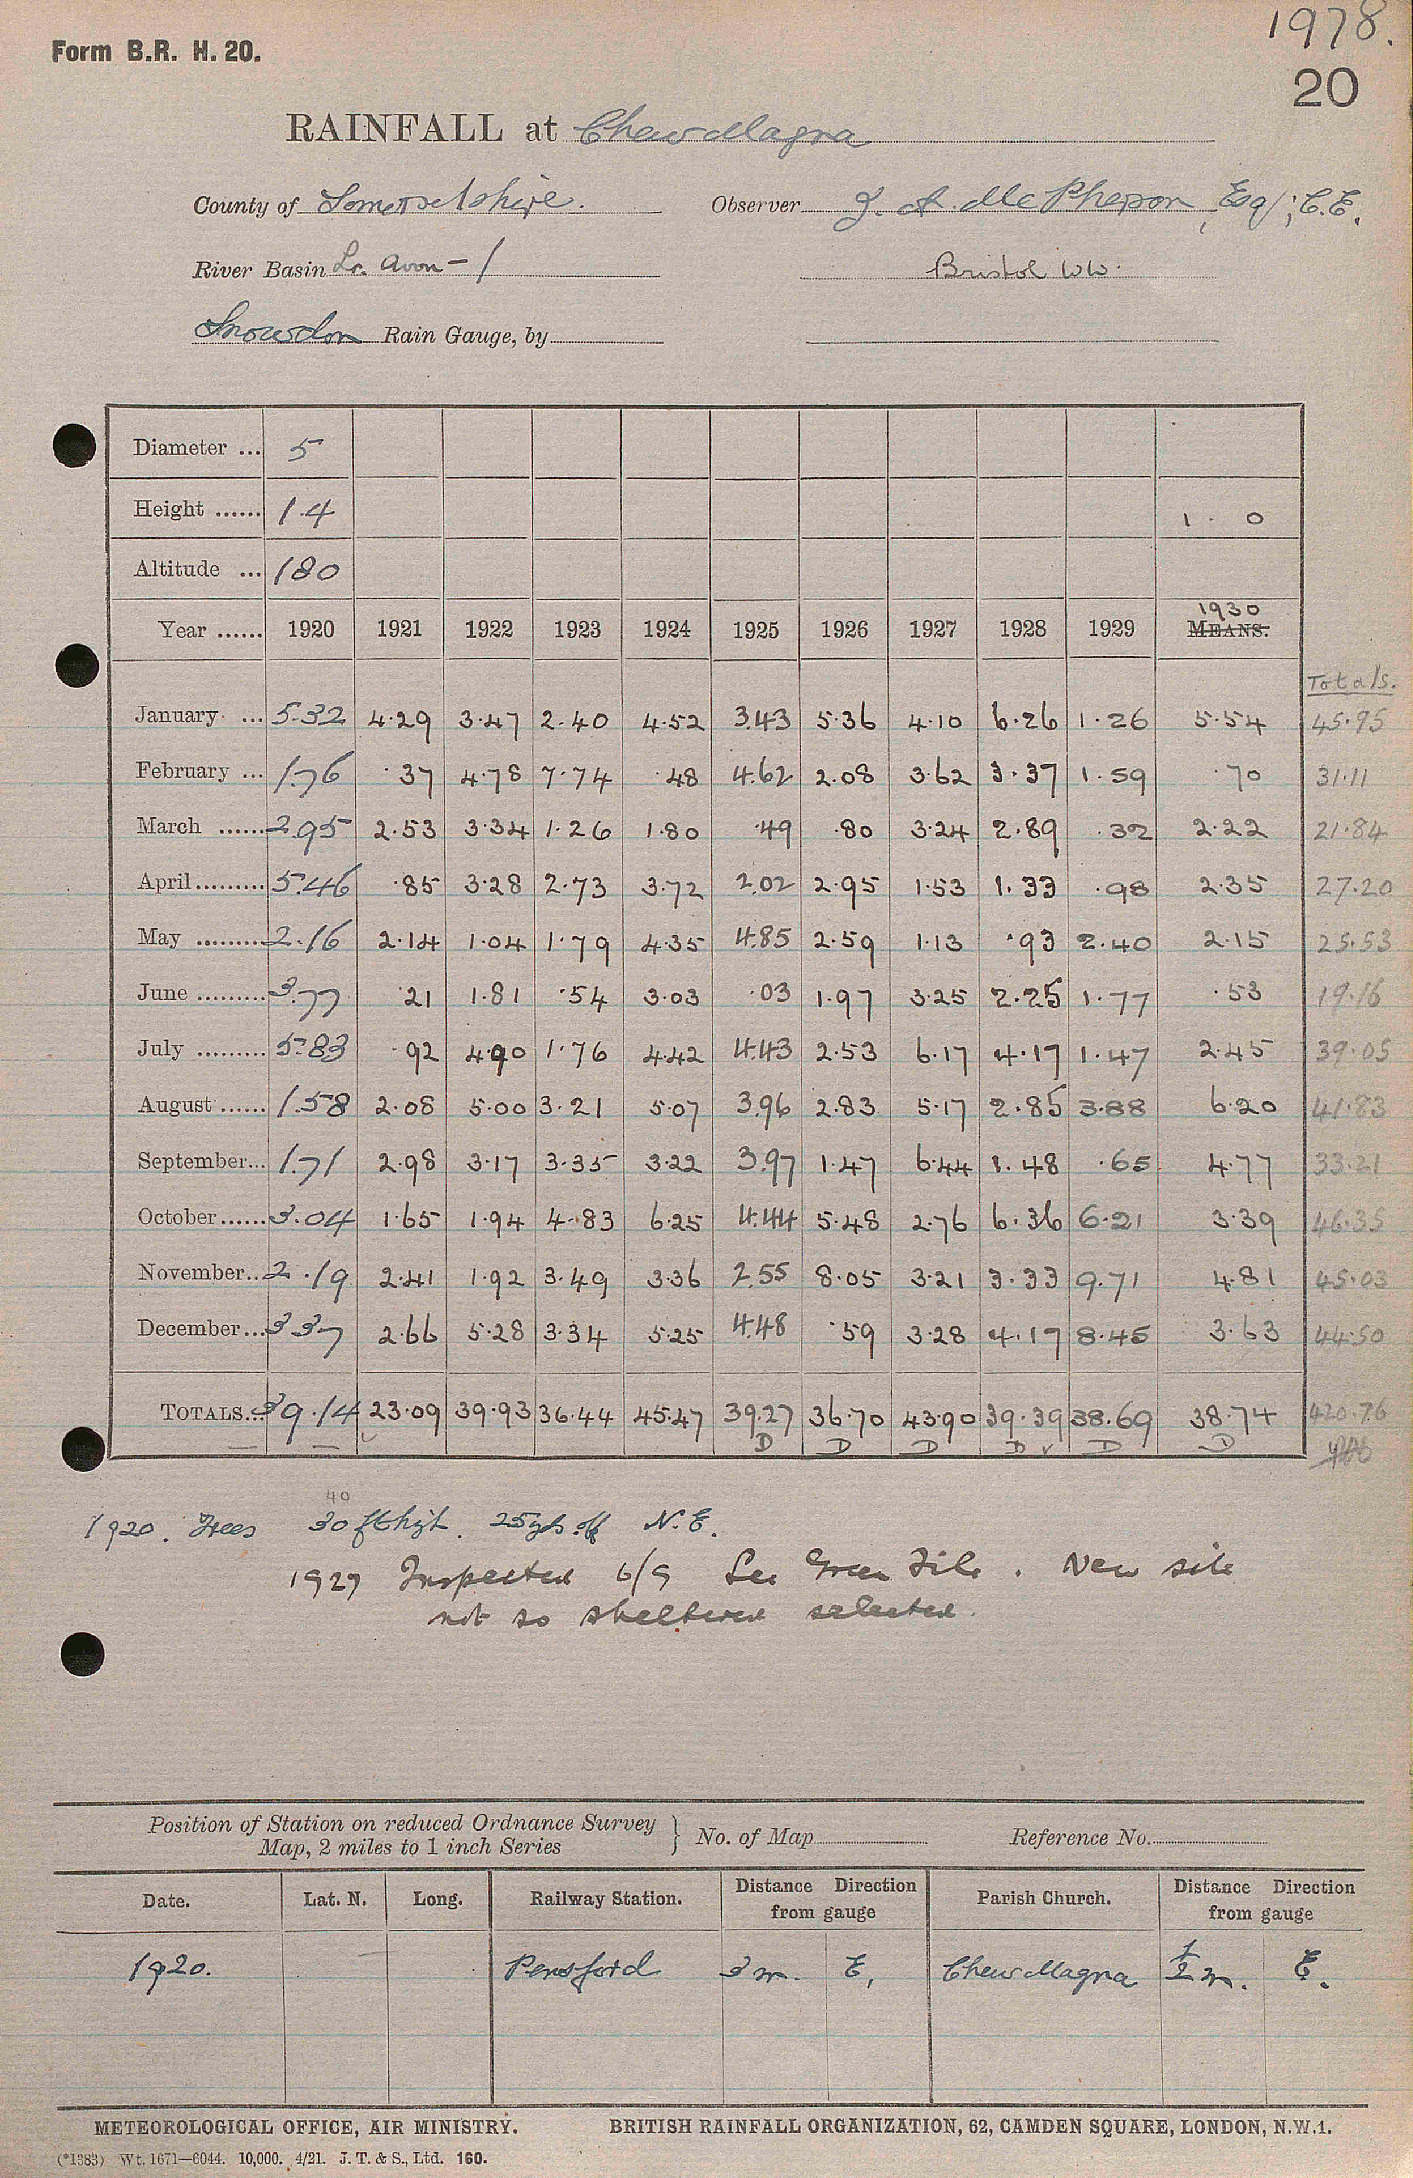 1978.
Form B.R. H. 20.
20
RAINFALL at Chew Magna
County of Somersetshire. Observer J. A. McPherson, Esq; C.E.
River Basin Lr. Avon - 1 Bristol WW.
Snowdon Rain Gauge, by
Diameter ... 5
Height ...... 1.4 1. 0
Altitude ... 180
1930
Year ...... 1920 1921 1922 1923 1924 1925 1926 1927 1928 1929 MEANS.
Totals.
January ... 5.32 4.29 3.47 2.40 4.52 3.43 5.36 4.10 6.26 1.26 5.54 45.95
February ... 1.76 .37 4.78 7.74 .48 4.62 2.08 3.62 3.37 1.59 .70 31.11
March ...... 2.95 2.53 3.34 1.26 1.80 .49 .80 3.24 2.89 .32 2.22 21.84
April ......... 5.46 .85 3.28 2.73 3.72 2.02 2.95 1.53 1.33 .98 2.35 27.20
May ......... 2.16 2.14 1.04 1.79 4.35 4.85 2.59 1.13 .93 2.40 2.15 25.53
June ......... 3.77 .21 1.81 .54 3.03 .03 1.97 3.25 2.25 1.77 .53 19.16
July ......... 5.83 .92 4.90 1.76 4.42 4.43 2.53 6.17 4.17 1.47 2.45 39.05
August ...... 1.58 2.08 5.00 3.21 5.07 3.96 2.83 5.17 2.85 3.88 6.20 41.83
September... 1.71 2.98 3.17 3.35 3.22 3.97 1.47 6.44 1.48 .65 4.77 33.21
October ...... 3.04 1.65 1.94 4.83 6.25 4.44 5.48 2.76 6.36 6.21 3.39 46.35
November .. 2.19 2.41 1.92 3.49 3.36 2.55 8.05 3.21 3.33 9.71 4.81 45.03
December ... 3 37 2.66 5.28 3.34 5.25 4.48 .59 3.28 4.17 8.45 3.63 44.50
TOTALS... 39.14 23.09 39.93 36.44 45.47 39.27 36.70 43.90 39.39 38.69 38.74 420.76
D D D D D D
40
1920. Trees 30 ft high. 25 yds. off N.E.
1927 Inspected 6/9 See Green File. New site
not so sheltered selected.
Position of Station on reduced Ordnance Survey
Map, 2 miles to 1 inch Series } No. of Map Reference No.
Date. Lat. N. Long. Railway Station. Distance Direction from gauge Parish Church. Distance Direction from gauge
1920. Pensford 3 m. E, Chew Magna 1/2 m. E.
METEOROLOGICAL OFFICE, AIR MINISTRY. BRITISH RAINFALL ORGANIZATION, 62, CAMDEN SQUARE, LONDON, N.W.1.
(*1383) Wt. 1671—6044. 10,000. 4/21. J. T. & S., Ltd. 160.